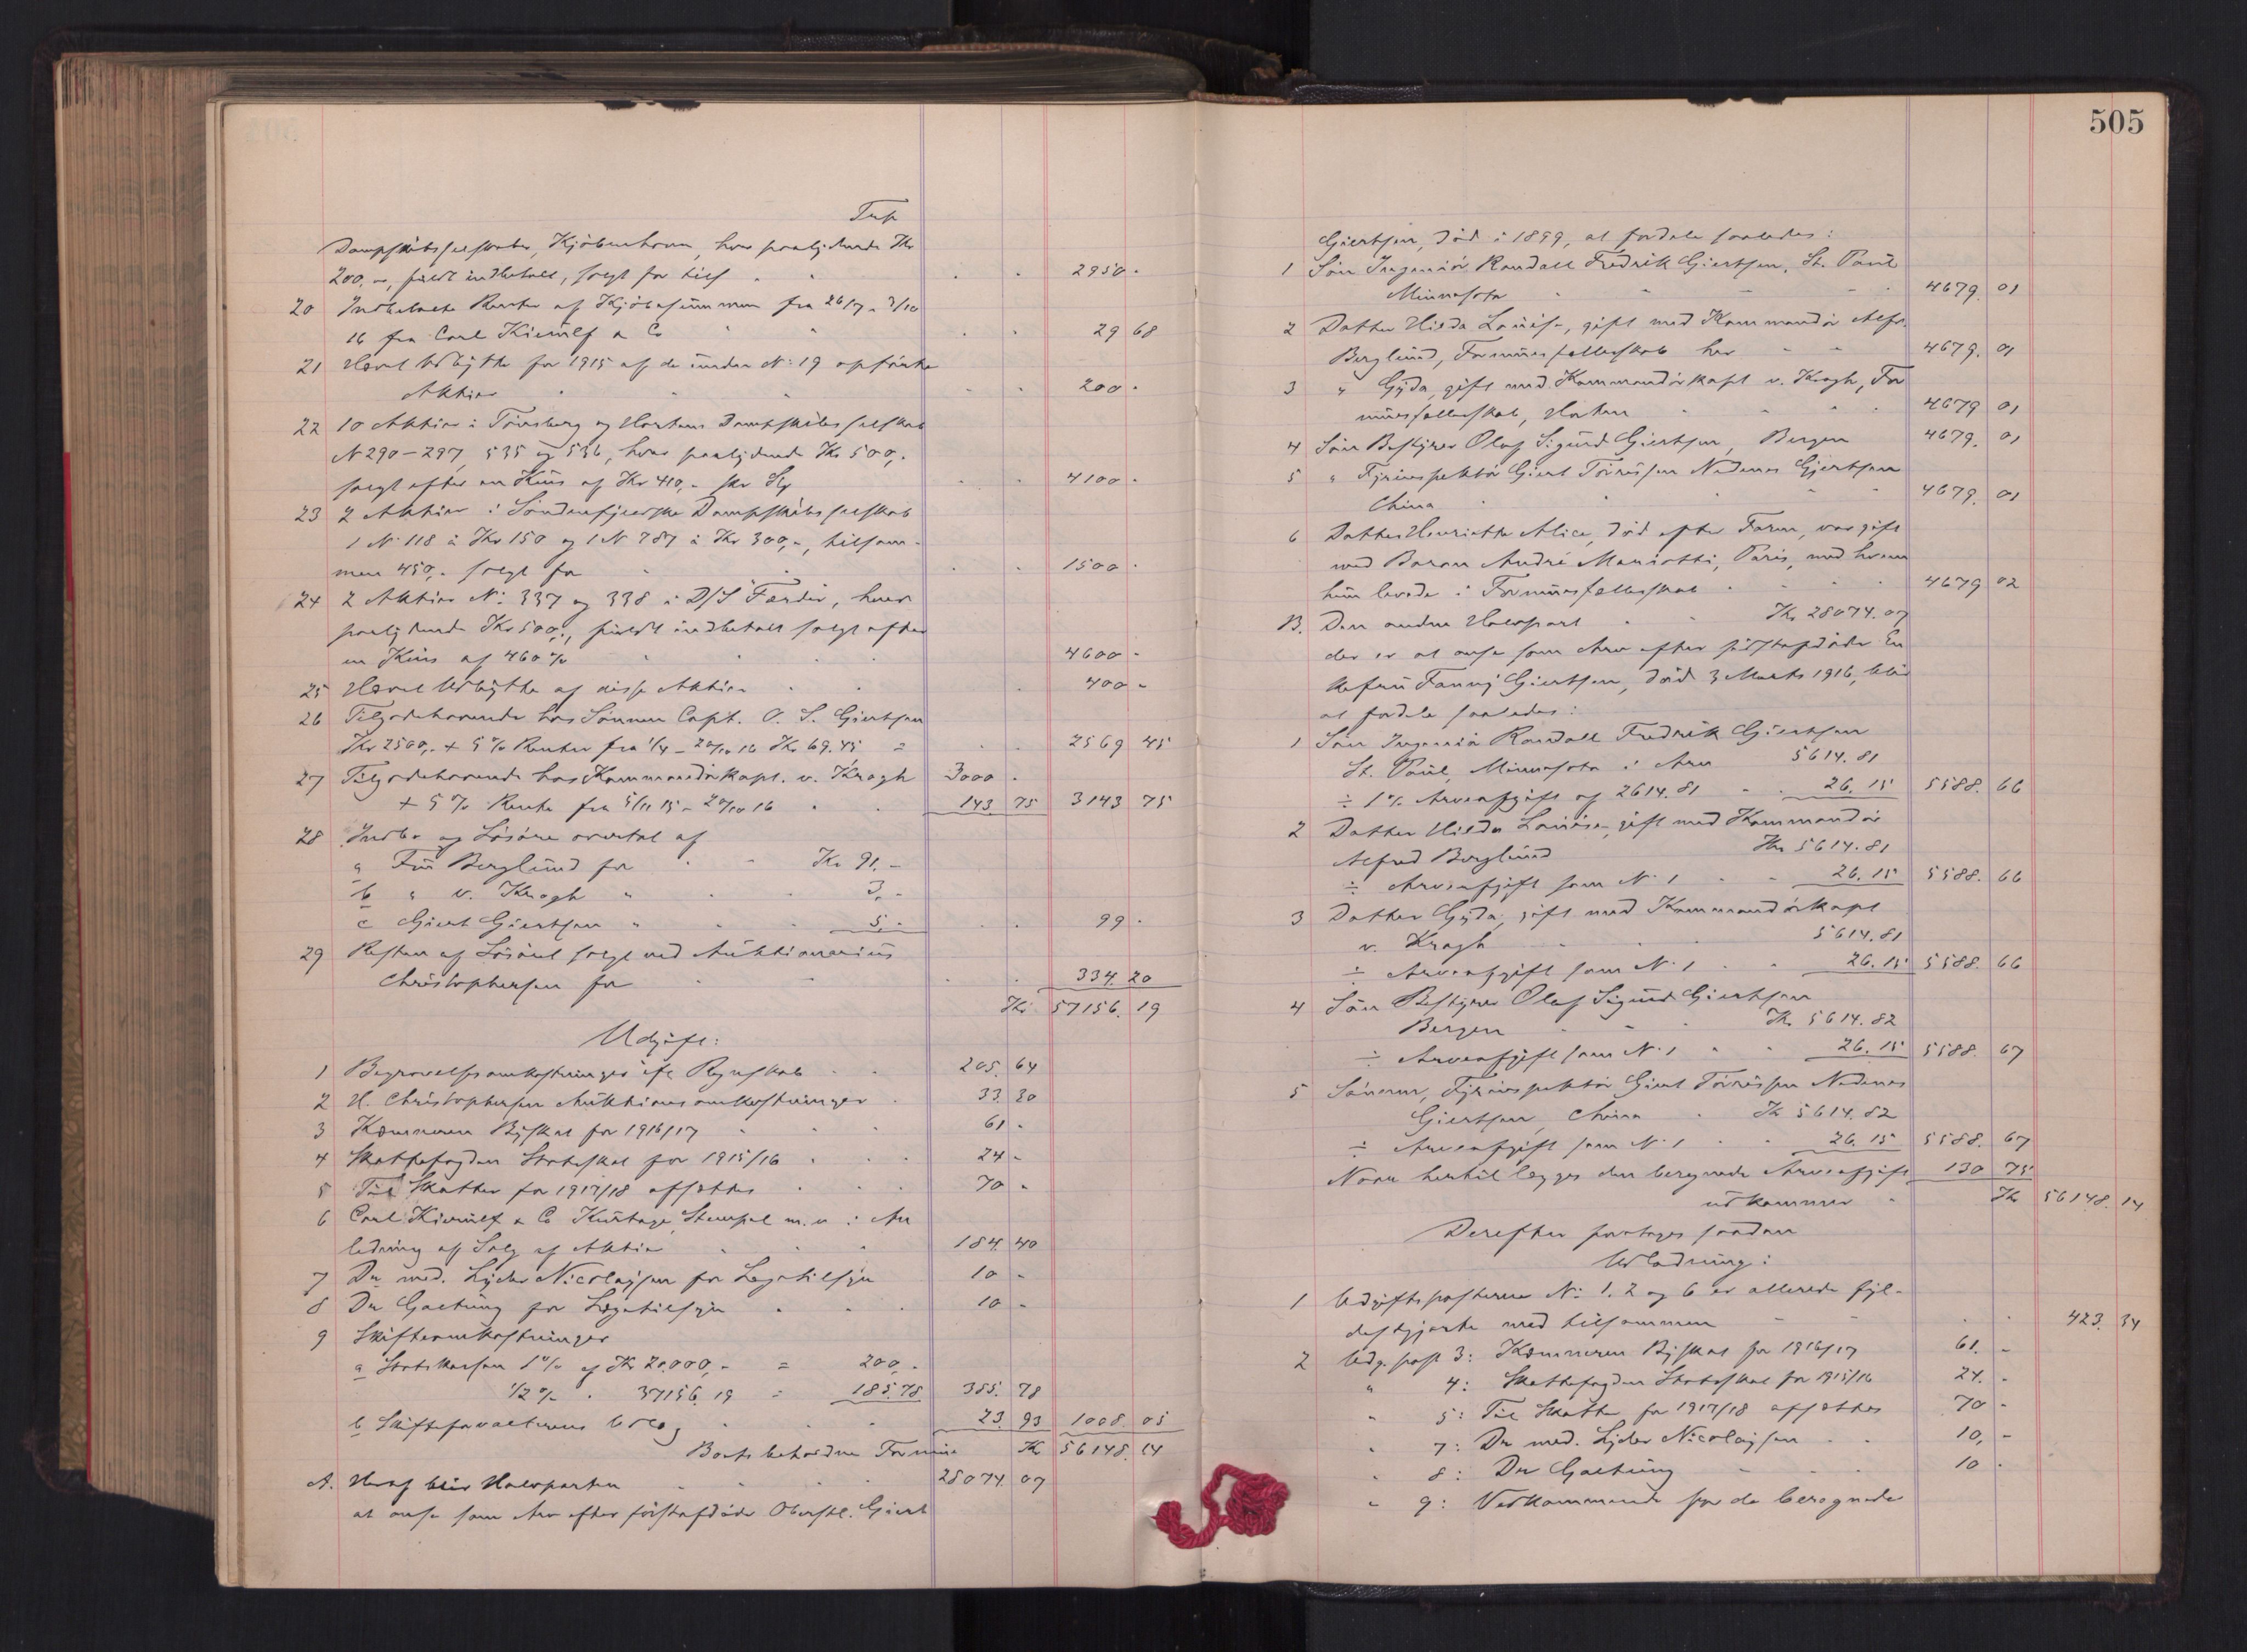 Trsp
Dampskibsselskaber, Kjöbenhavn, hver paalydende Kr
200,-, fuldt indbetalt, solgt for tils - - 2950 -
20 Indbetalte Renter af Kjöbesummen fra 26/7 - 3/10
16 fra Carl Kierulf & Co 29 68
21 Hævet Udbytte for 1915 af de under No: 19 opförte
Aktier 200 -
22 10 Aktier i Tönsberg og Hortens Dampskibsselskab
N 290-297, 535 og 536, hver paalydende Kr 500,-
solgt efter en Kurs af Kr 410,- pr Stk 4100 -
23 2 Aktier i Söndenfjeldske Dampskibsselskab
1 No 118 à Kr 150 og 1 N 787 à Kr 300,-, tilsam-
men 450,- solgt for 1500 -
24 2 Aktier No: 337 og 338 i D/S Færder, hver
paalydende Kr 500,-, fuldt indbetalt solgt efter
en Kurs af 460 % 4600 -
25 Hævet Udbytte af disse Aktier 400 -
26 Tilgodehavende hos Sönnen Capt. O. S. Giertsen
Kr 2500,- + 5 % Renter fra 1/4 - 20/10 16 Kr 69.45 = 2569 45
27 Tilgodehavende hos Kommandörkapt. v. Krogh 3000 -
+ 5 % Rente fra 5/11 15 - 20/10 16 143 75 3143 75
28 Indbo og Lösöre overtat af
a Fru Berglund for Kr 91,-
b " v. Krogh " 3,-
c Giert Giertsen " 5,- 99 -
29 Resten af Lösöret solgt ved Auktionarius
Christophersen for 334. 20
Kr 57156. 19
Udgift:
1 Begravelsesomkostninger ifl Regnskab 205. 64
2 H. Christophersen Auktionsomkostninger 33. 30
3 Kæmneren Byskat for 1916/17 61 -
4 Skattefogden Statsskat for 1915/16 24 -
5 Til Skatter for 1917/18 afsættes 70 -
6 Carl Kierulf & Co Kurtage, Stempel m.v. i An
ledning af Salg af Aktier 184. 40
7 Dr med. Lyder Nicolaysen for Lægetilsyn 10 -
8 Dr Gaetung for Lægetilsyn 10 -
9 Skifteomkostninger
a Statskassen 1 % af Kr 20.000,- = 200,-
1/2 % - 37156. 19 = 185.78 385. 78
b Skifteforvalterens Udlæg 23. 93 1008. 05
Boets beholdne Formue Kr 56148. 14
A. Heraf blir Halvparten 28074 07
at anse som Arv efter förstafdöde Oberstl. Giert
505
Giertsen, död i 1899, at fordele saaledes:
1 Sön Ingeniör Randall Fredrik Giertsen, St. Paul
Minnesota 4679. 01
2 Datter Hilda Louise, gift med Kommandör Alfr.
Berglund, Formuesfælleskab her 4679. 01
3 " Gyda, gift med Kommandörkapt v. Krogh, For
muesfælleskab, Horten 4679 01
4 Sön Bestyrer Olaf Sigurd Giertsen, Bergen 4679. 01
5 " Fyrinspektör Giert Törresen Nedenes Gjertsen
China 4679. 01
6 Datter Henriette Alice, död efter Faren, var gift
med Baron André Mariotti, Paris, med hvem
hun levede i Formuesfælleskab 4679 02
B. Den anden Halvpart Kr 28074. 07
der er at anse som Arv efter sidstafdöde En
kefru Fanny Giertsen, död 3 Marts 1916, blir
at fordele saaledes:
1 Sön Ingeniör Randall Fredrik Giertsen
St. Paul, Minnesota i Arv 5614. 81
÷ 1 % Arveafgift af 2614. 81 26. 15 5588. 66
2 Datter Hilda Louise, gift med Kommandör
Alfred Berglund Kr 5614. 81
÷ Arveafgift som N. 1 26. 15 5588. 66
3 Datter Gyda, gift med Kommandörkapt
v. Krogh 5614. 81
÷ Arveafgift som N. 1 26. 15 5588. 66
4 Sön Bestyrer Olaf Sigurd Giertsen
Bergen Kr 5614. 82
÷ Arveafgift som N. 1 26. 15 5588. 67
5 Sönnen, Fyrinspektör Giert Törresen Nedenes
Giertsen, China Kr 5614. 82
÷ Arveafgift som N. 1 26. 15 5588. 67
Naar hertil lægges den beregnede Arveafgift 130 75
utkommer Kr 56148. 14
Derefter foretages saadan
Udlodning:
1 Udgiftsposterne No: 1. 2 og 6 er allerede fyl-
destgjorte med tilsammen 423. 34
2 Udg. post 3: Kæmneren Byskat for 1916/17 61. -
" 4: Skattefogden Statsskat for 1915/16 24. -
" 5: Til Skatter for 1917/18 afsættes 70 -
" 7: Dr med. Lyder Nicolaysen 10,-
" 8: Dr Gaetung 10 -
" 9: Vedkommende for de beregnede